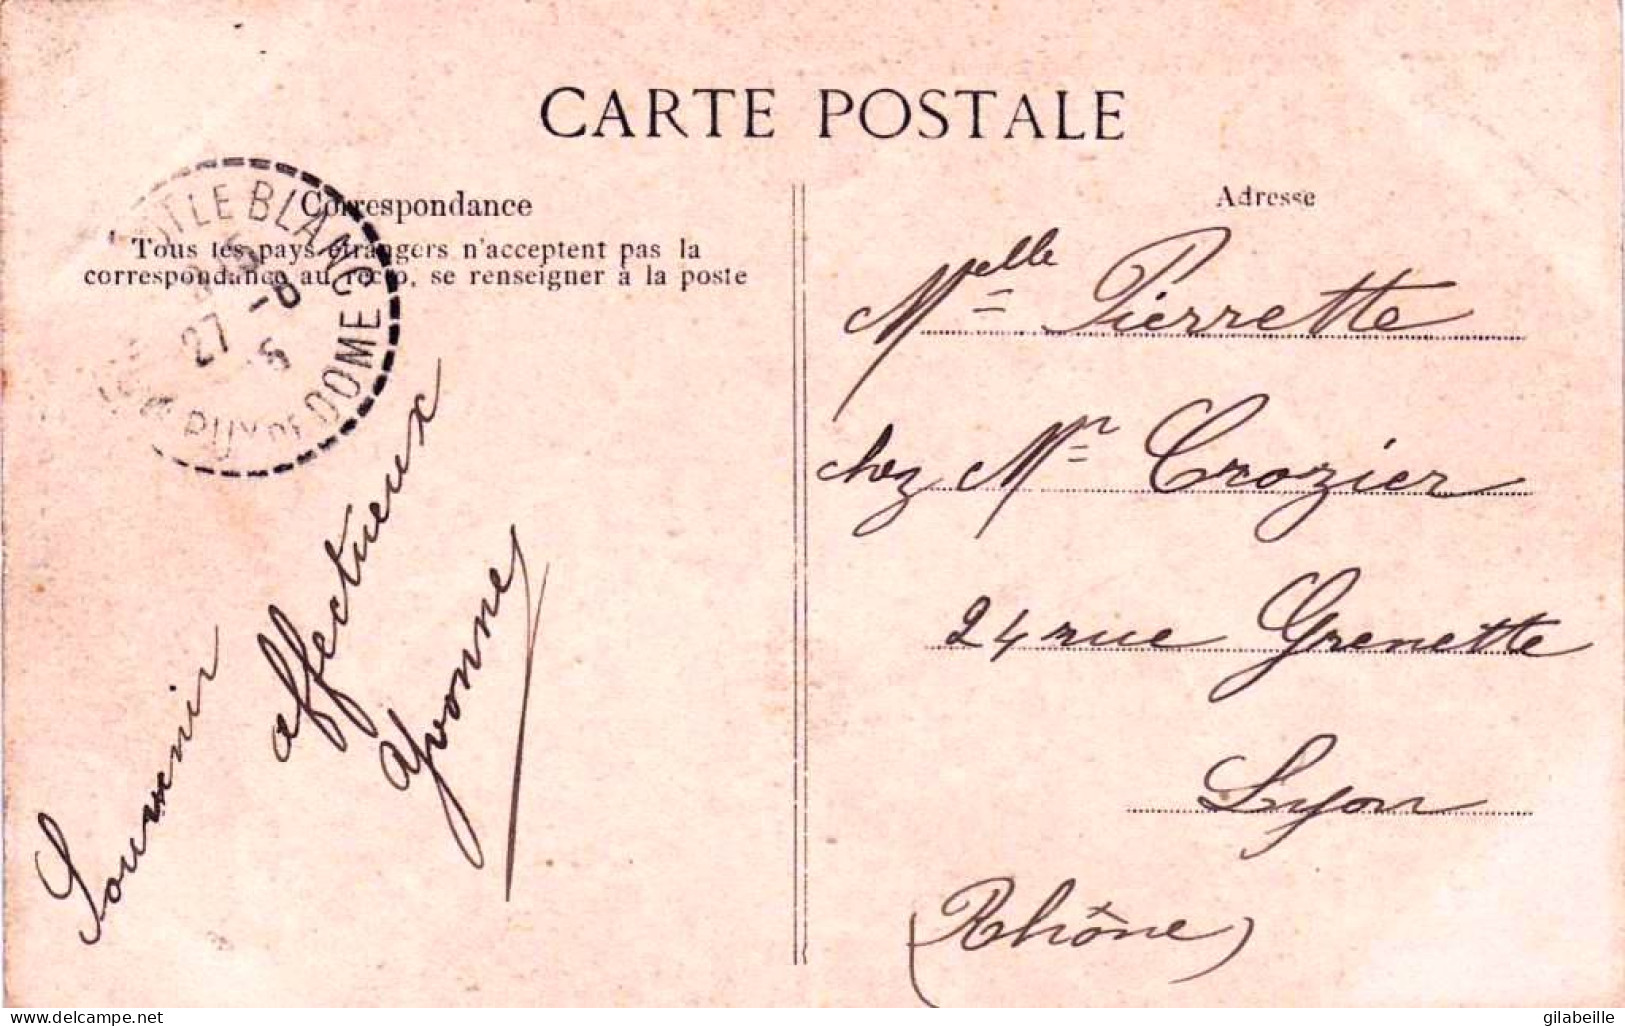 CARTE POSTALE
Correspondance
Tous les pays étrangers n'acceptent pas la
correspondance au recto, se renseigner à la poste
LE BLANC
27 -8
PUY DE DOME
Souvenir
affectueux
Yvonne
Adresse
Melle Pierrette
chez Mr Crozier
24 rue Grenette
Lyon
(Rhône)
delcampe.net
gilabeille